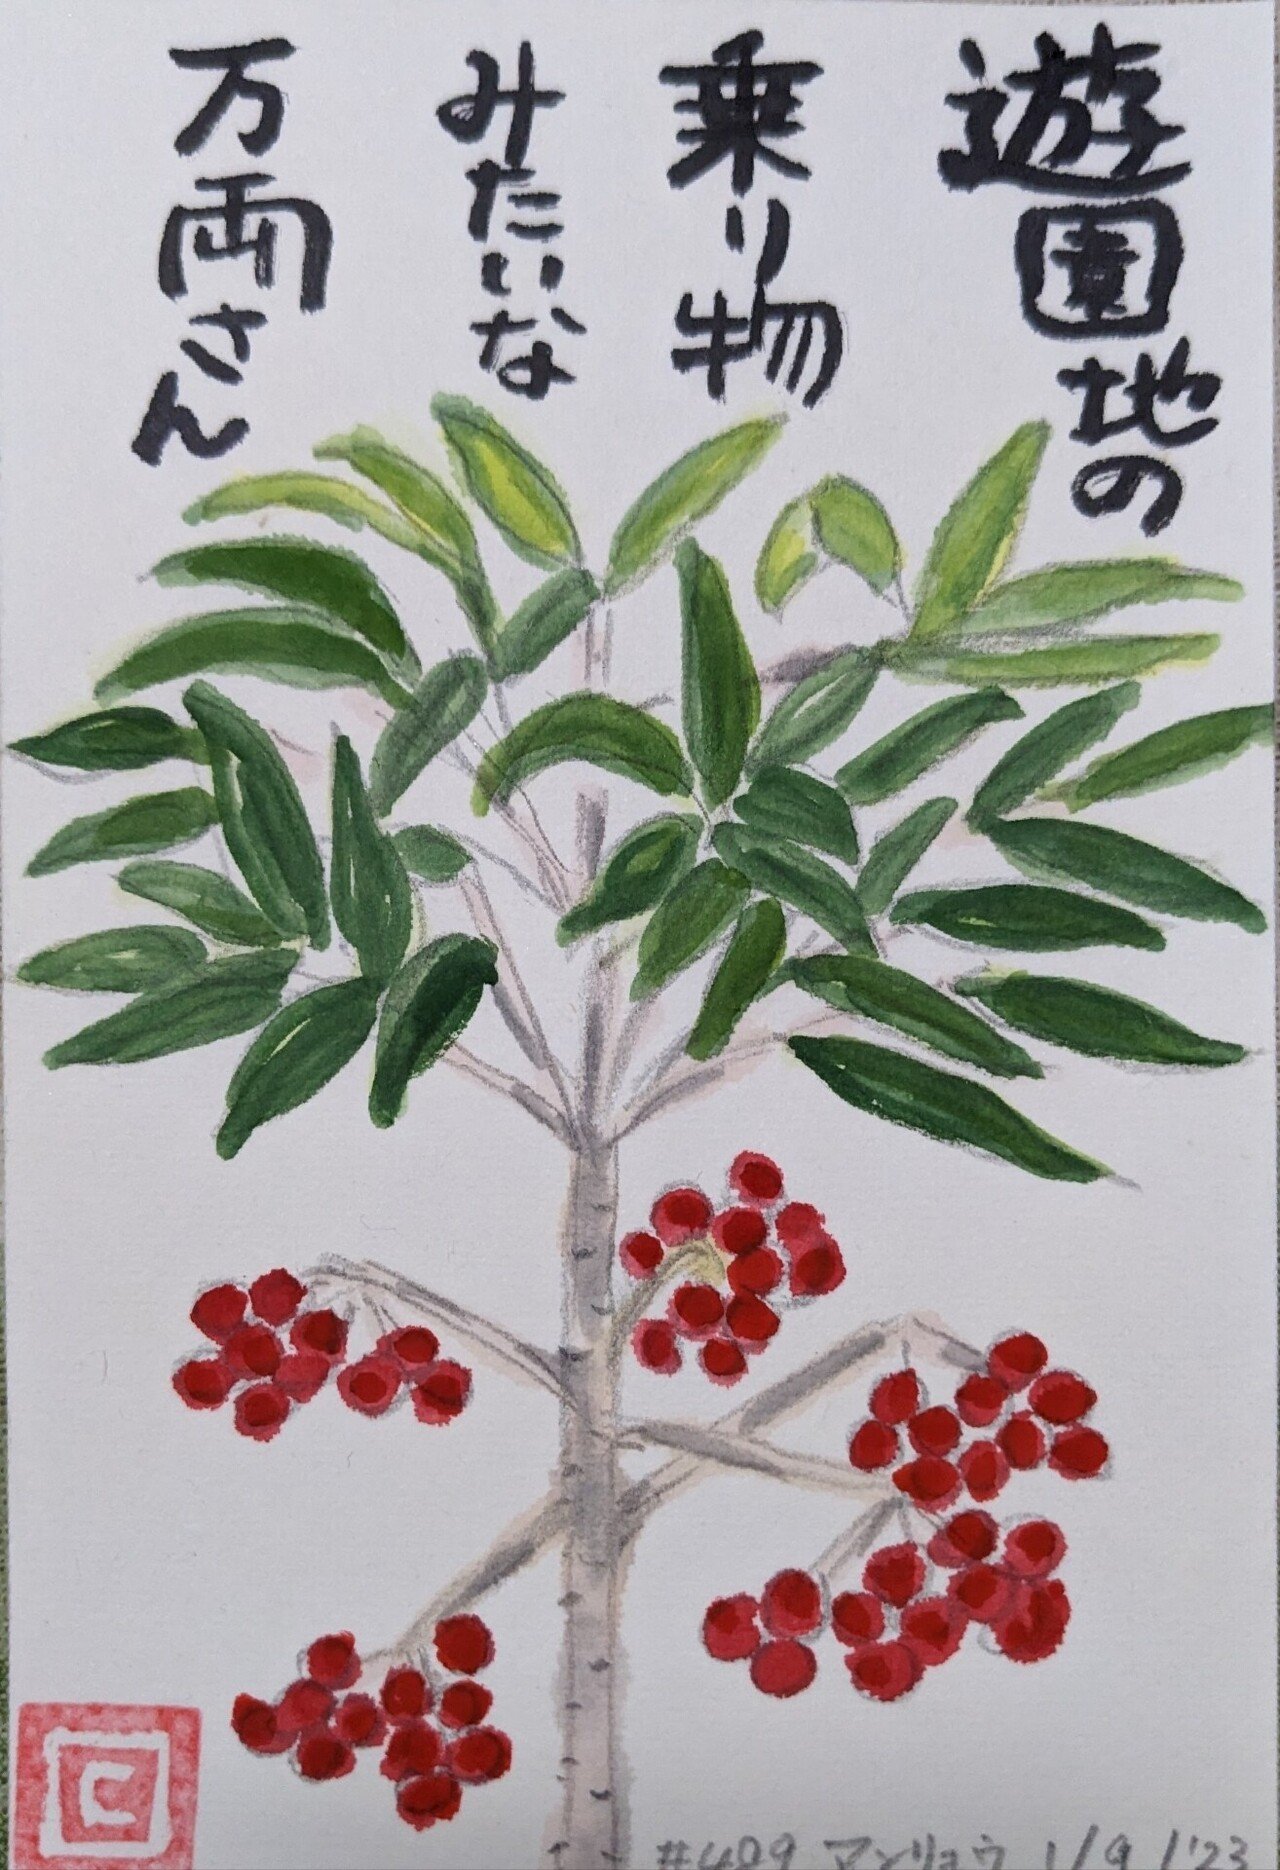 遊園地の
乗り物
みたいな
万両さん
#409 マンリョウ 1/9 '23